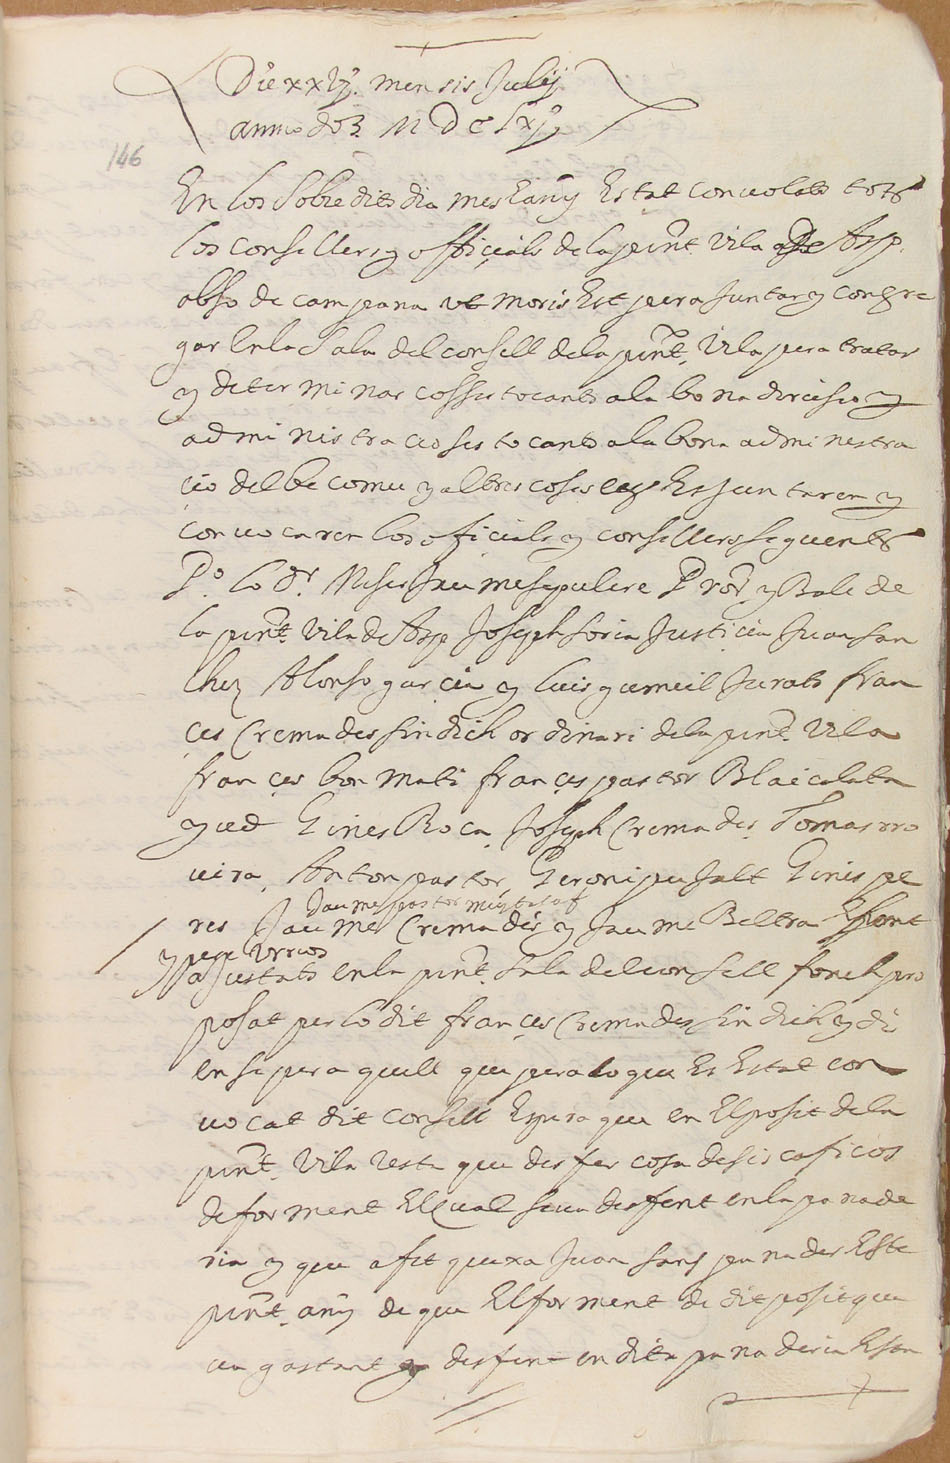 Die xxvj mensis Julij
anno doż MDClxj
146
En los sobredits dia mes E any Estat convolats tots
los consellers y officials dela pnt vila de Asp
abso de campana ut moris Est pera juntar y congre
gar En la Sala del consell dela pnt vila pera tratar
y determinar cosses tocants ala bona direcsio y
administracio ses tocants ala bona administra
cio del be comu y altres coses Es juntaren y
convocaren los oficials y consellers seguents
Po lo dr Miser Jaume sepulcre Pror y Bale de
la pnt vila de Asp Joseph soria Justicia Juan san
chez Alonso garcia y luis gumeil Jurats fran
ces Cremades sindich ordinari dela pnt vila
frances bon mati frances pastor Blai calata
yud Gines Roca Joseph Cremades Tomas rro
vira Anton pastor Geroni pujalt Ginis pe
Jaume pastor mustasaf
res Jaume Cremades y Jaume Beltra
y pere Urrios
ajustats en la pnt sala del consell fonch pro
posat per lo dit frances Cremades sindich y di
ense per aquell que pera lo que Es Estat con
vocat dit consell Es pera que en El posit dela
pnt vila resta que desfer cosa de sis caficos
de forment El qual seva desfent en la panade
ria y que a fet quexa Juan sans panader Este
pnt any de que El forment de dit posit que
va gastant y desfent en dita panaderia Esta